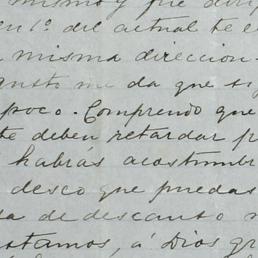 mismo y que
en 1º. del actual te es
misma direccion
gusto me da que si
poco. Comprendo que
te deben retardar p
habrás acostumbr
deseo que puedas
de descanto
stamos, á Dios gr